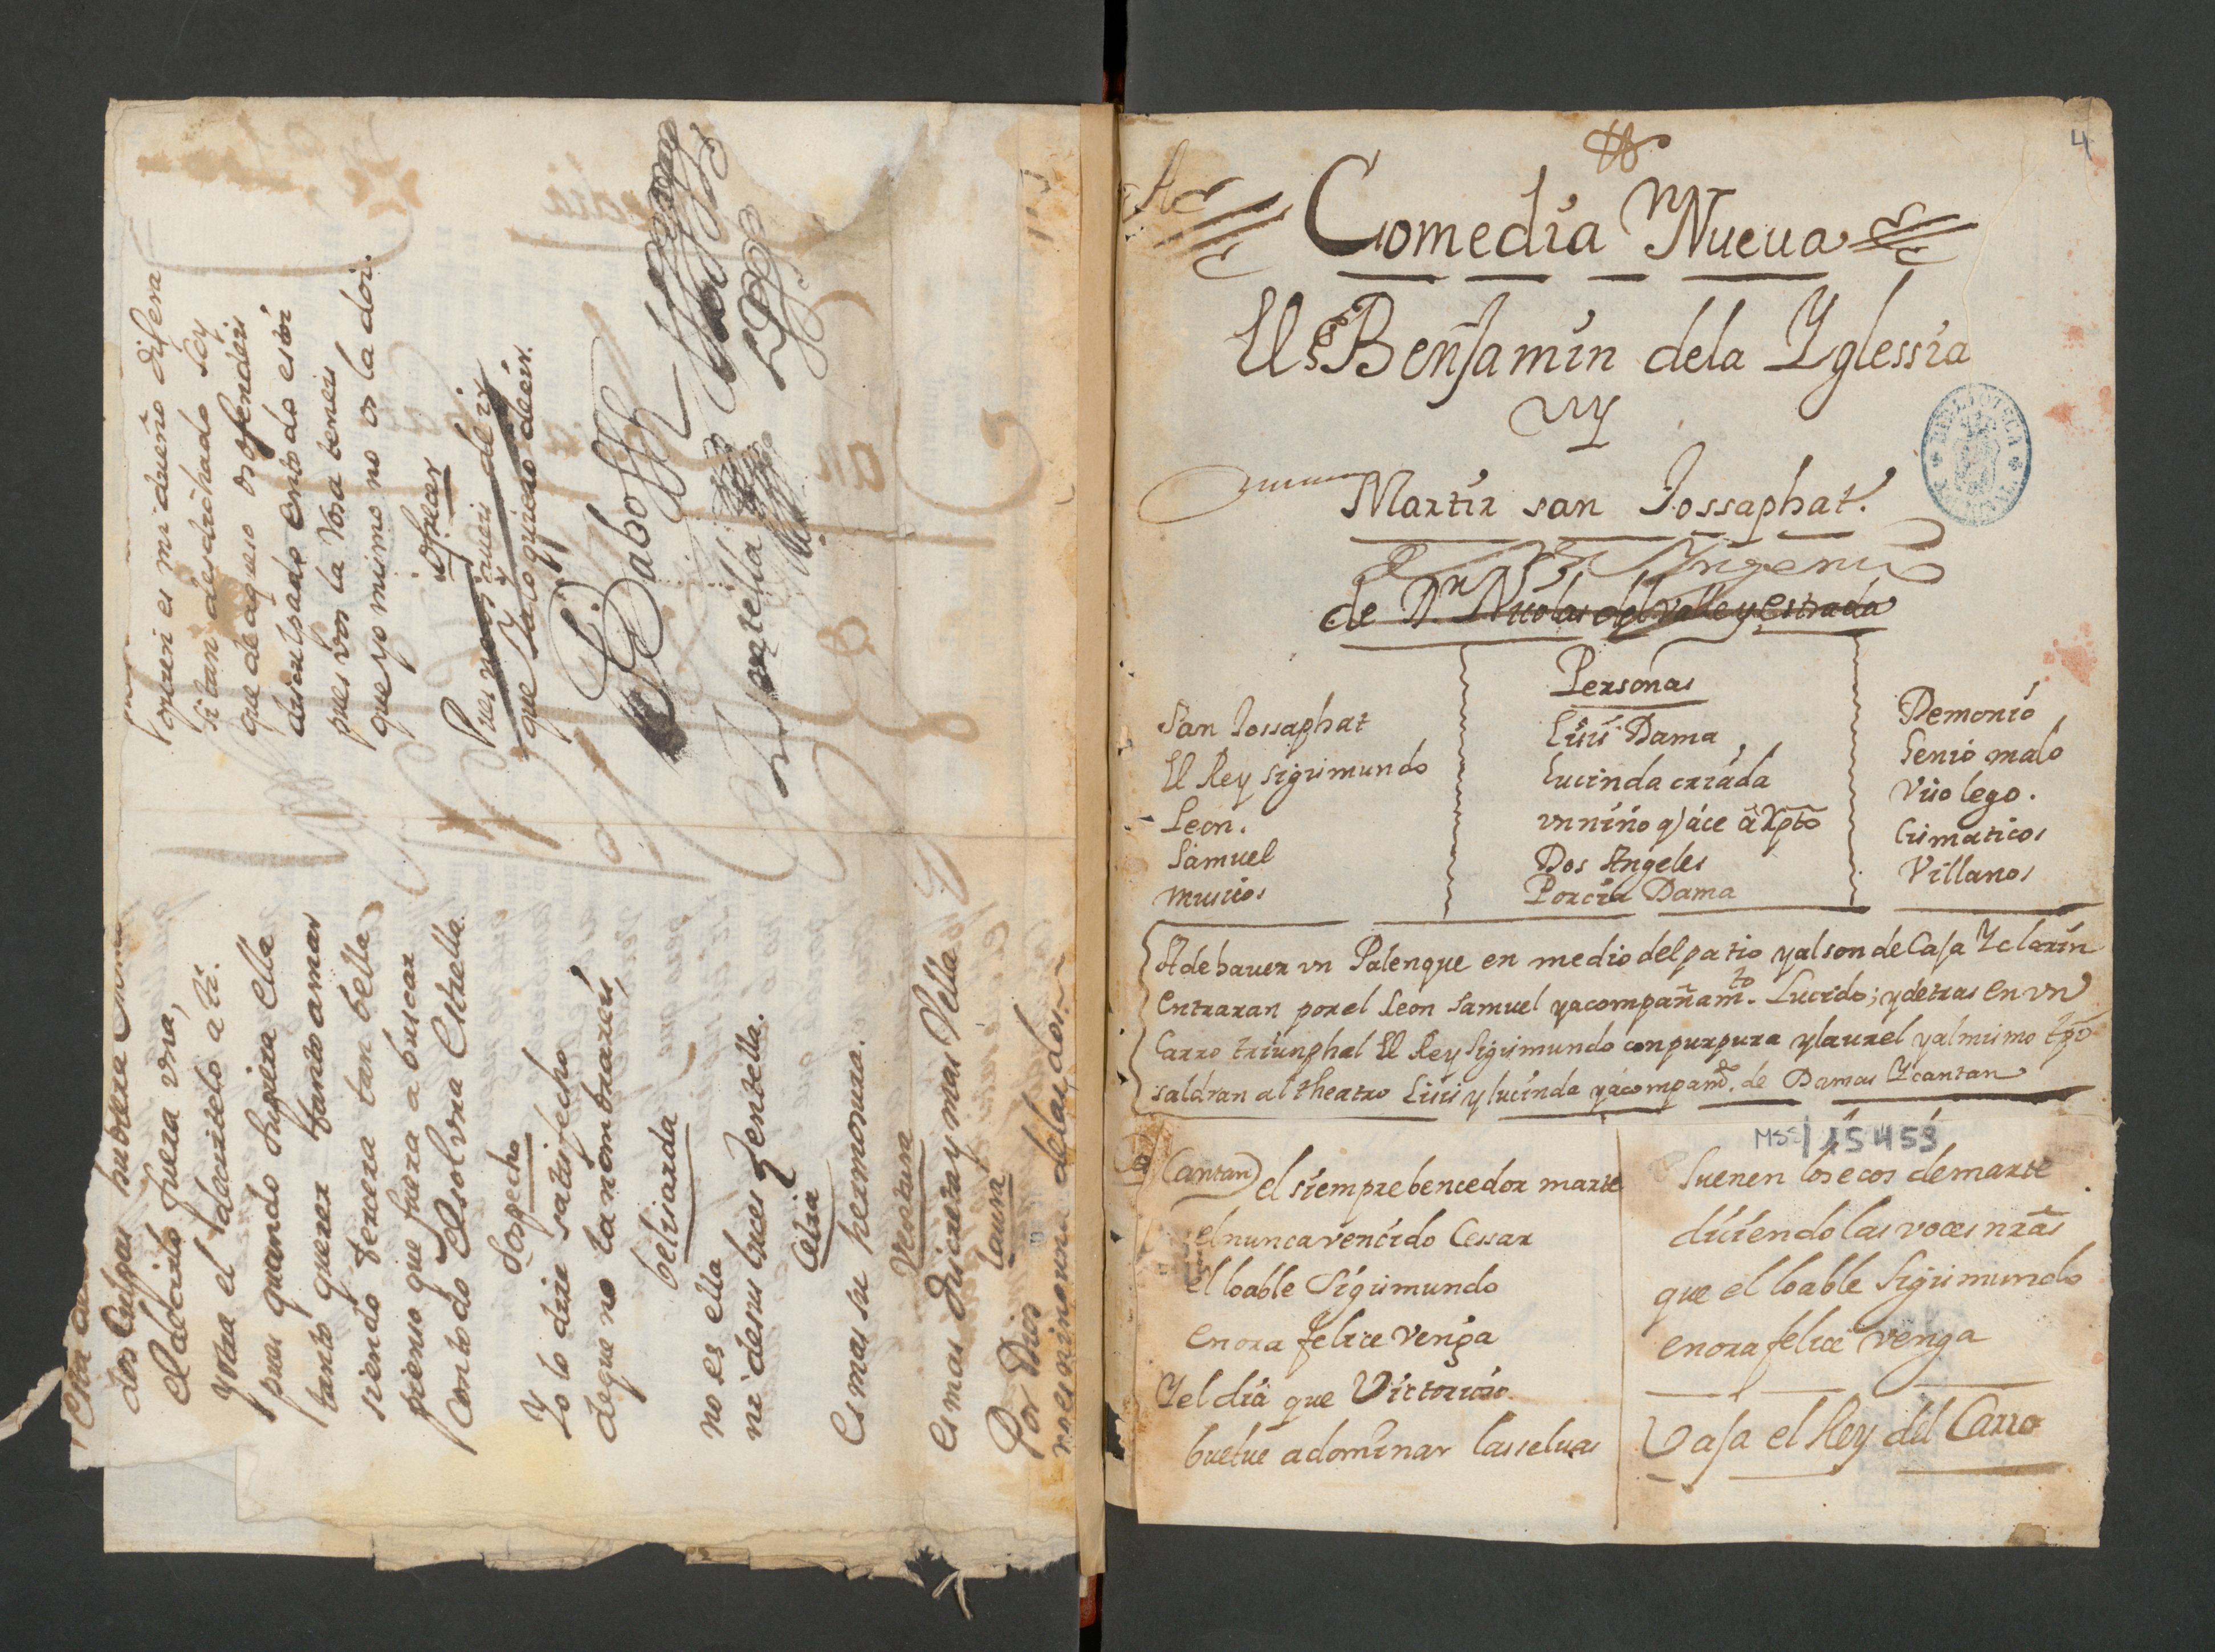 Esta
dos culpas hubiera
el decirlo fuera vna,
y otra el decirselo a ti.
pues quando supiera ella
tanto querer tanto amar
siendo ferera tan bella
pienso que fuera a buscar
con todo el sol vna estrella
Sospecho
Yo lo dixe satisfecho
de que no la nombrareis
belisarda
no es ella
ni de sus luces zentella.
Celia
es mas su hermosura.
Ventura
es mas discreta y mas vella
Laura
Por Dios
no es ninguna de las dos
porque si es mi dueño difera
si tan desdichado soy
que de aqueso os ofendeis
disculpado en todo estoi
pues vos la vosa teneis
que yo mismo no os la doi.
Pues no os quereis decir
que Ya lo quiero decir.
4
Comedia Nueua
El Benjamin dela Yglessia
y
Martir san Jossaphat.
Yngenio
de Dn. Nicolas del valle y estrada
Personas
San Jossaphat
El Rey Sigismundo
Leon.
Samuel
musicos
Lisis Dama
Lucinda criada
vn niño q̃ ace a Xpto
Dos Angeles
Porcia Dama
Demonio
Genio malo
Viio lego.
Cismaticos
Villanos
A de hauer vn Palenque en medio del patio y al son de Caja Y clarin
entraran por el Leon Samuel y acompañamto. Lucido; y detras en vn
Carro triunphal El Rey Sigismundo con purpura y laurel y al mismo tpo
saldran al theatro Lisis y lucinda y acompamto. de Damas Y cantan
MSS/15459
Cantan) el siempre bencedor marte
el nunca vencido Cessar
el loable Sigismundo
en ora felice venga
Y el dia que Victorioso
buelue a dominar las seluas
Suenen los ecos de marte
diciendo las voces nras
que el loable Sigismundo
en ora felice venga
Vaja el Rey del Carro